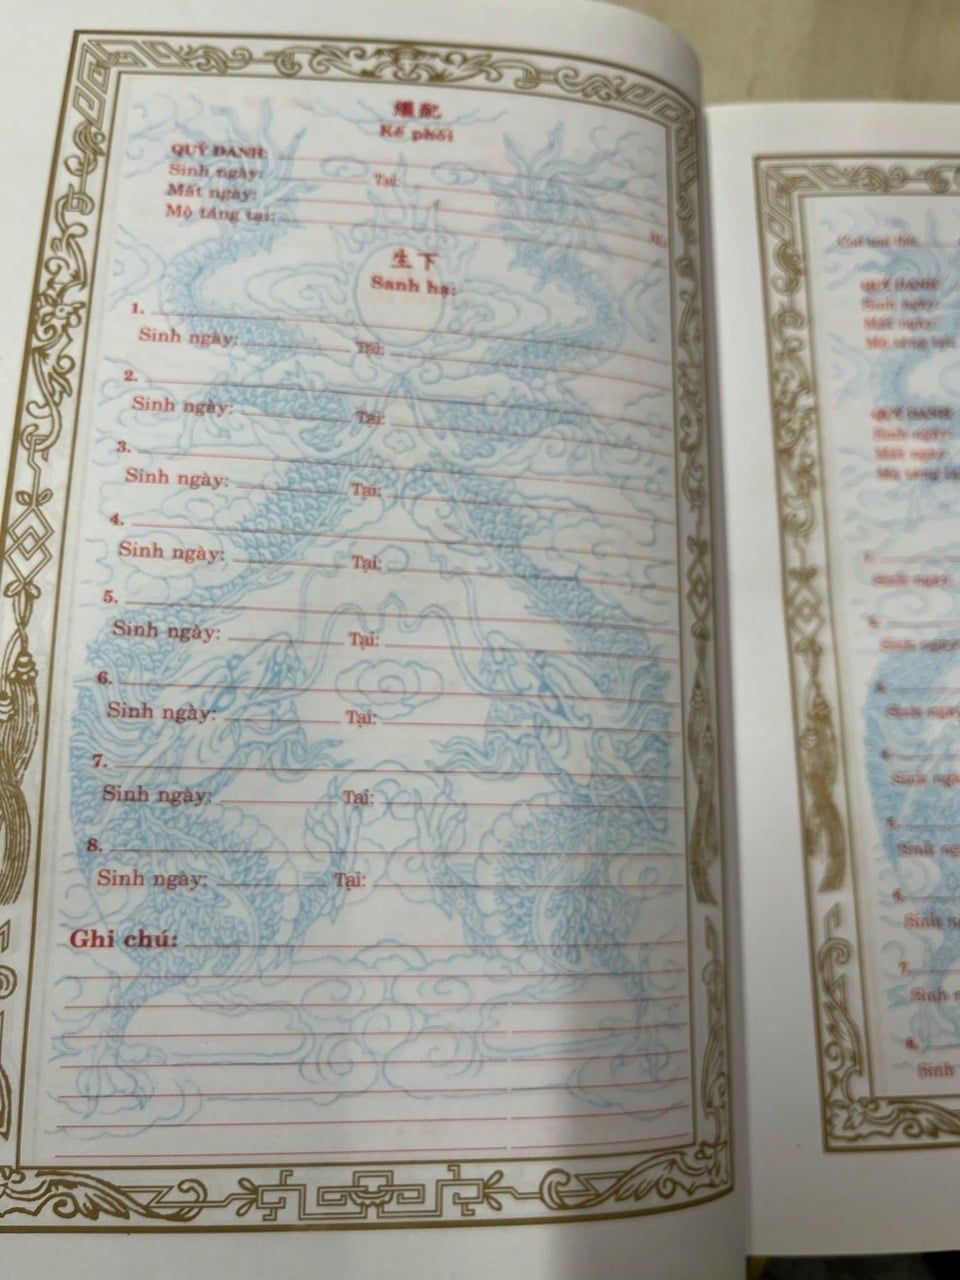 繼配
Kế phối
QUÝ DANH:
Sinh ngày: Tại:
Mất ngày:
Mộ táng tại:
生下
Sanh hạ:
1.
Sinh ngày: Tại:
2.
Sinh ngày: Tại:
3.
Sinh ngày: Tại:
4.
Sinh ngày: Tại:
5.
Sinh ngày: Tại:
6.
Sinh ngày: Tại:
7.
Sinh ngày: Tại:
8.
Sinh ngày: Tại:
Ghi chú:
QUÝ DANH
Sinh ngày:
Mất ngày:
Mộ táng tại:
QUÝ DANH
Sinh ngày:
Mất ngày:
Mộ táng tại
Sinh ngày:
Sinh ngày:
Sinh ngày
Sinh ngày
5.
Sinh ng
6.
Sinh ng
7.
Sinh n
8.
Sinh